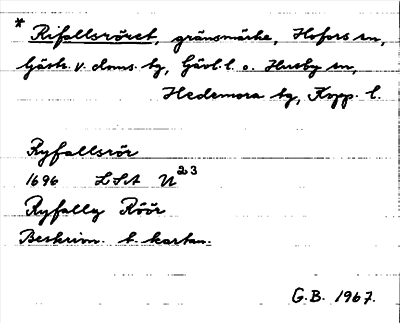 * Rifallsröret, gränsmärke, Hofors sn,
Gästr. v. doms. tg, Gävl. l. o. Husby sn,
Hedemora tg, Kopp. l.
Ryfallsrör
1696 LSA U 23
Ryfally Röör
Beskrivn. t. kartan.
G.B. 1967.